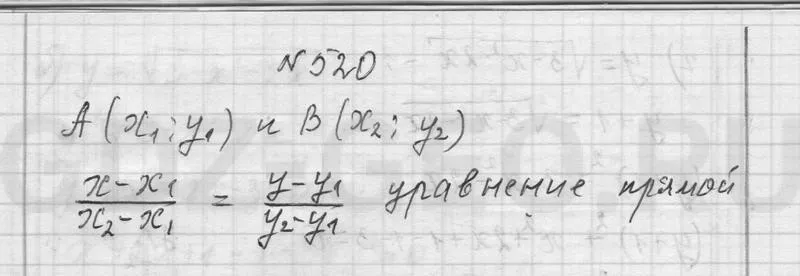 N 520
A (x₁; y₁) и B (x₂; y₂)
(x - x₁)/(x₂ - x₁) = (y - y₁)/(y₂ - y₁) уравнение прямой